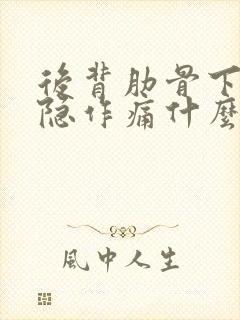 後背肋骨下
隐作痛什麼
風中人生